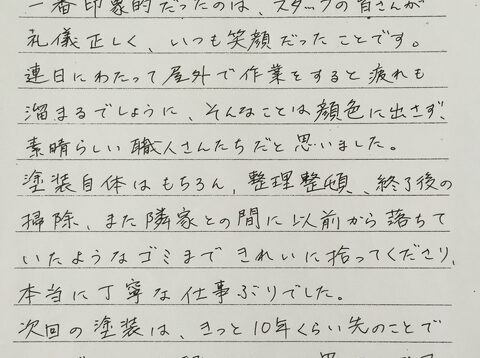 一番印象的だったのは、スタッフの皆さんが
礼儀正しく、いつも笑顔だったことです。
連日にわたって屋外で作業をすると疲れも
溜まるでしょうに、そんなことは顔色に出さず、
素晴らしい職人さんたちだと思いました。
塗装自体はもちろん、整理整頓、終了後の
掃除、また隣家との間に以前から落ちて
いたようなゴミまできれいに拾ってくださり、
本当に丁寧な仕事ぶりでした。
次回の塗装は、きっと10年くらい先のことで